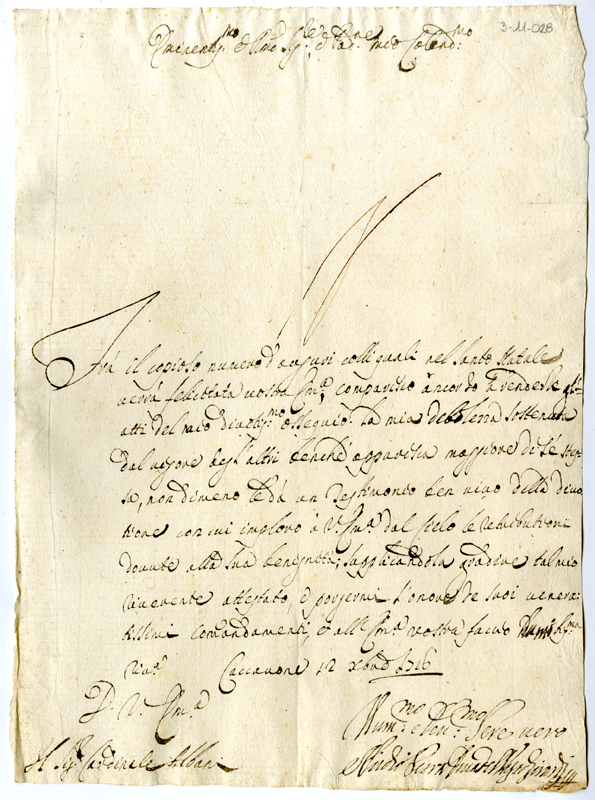 3-11-028
Eminent.mo e Rmo Sig.re e Pad.ne mio Colend.mo
Frà il copioso numero d'auguri colli quali nel Santo Natale
verrà felicitata vostra Em.a comparisco ancor Io à renderle gli
atti del mio divotis.mo ossequio. La mia debolezza sostenuta
dal vigore degl'altri benche apparisca maggiore di se stes-
sa, nondimeno le dà un testimonio ben vivo della divo
tione con cui imploro à V. Em.a dal Cielo le retributioni
dovute alla sua benignità; supplicandola gradire tal mio
riverente attestato, e porgermi l'onore de suoi venera
tissimi comandamenti, e all' Em.a vostra faccio
riva. Caccavone 12 xbre 1716
D. V. Em.a
Hum.mo e Dev.mo Serv. vero
Il Sig. Cardinale Albani